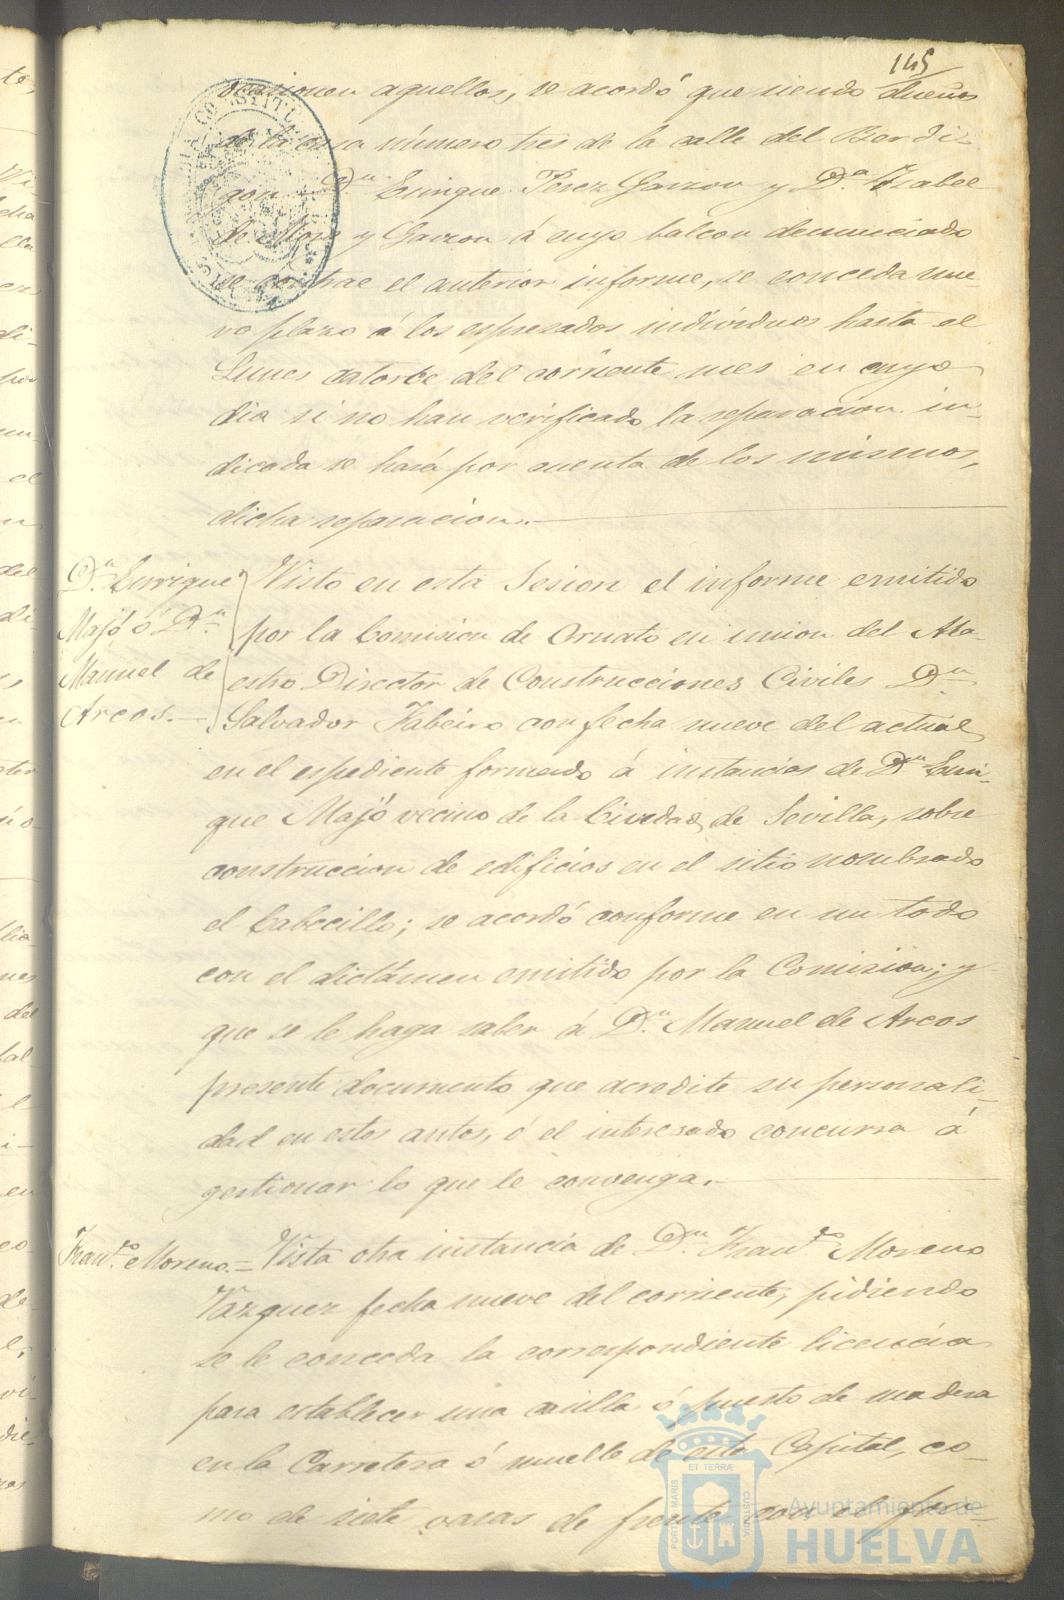 145
ocasionen aquellos, se acordó que siendo dueños
de la casa número tres de la calle del Berdi-
gon Dn. Enrique Perez Garzon y Da. Isabel
de Mora y Garzon á cuyo balcon denunciado
se contrae el anterior informe, se conceda nue-
vo plazo á los espresados individuos hasta el
Lunes catorce del corriente mes en cuyo
dia si no han verificado la reparacion in-
dicada se hará por cuenta de los mismos,
dicha reparacion.
Dn. Enrique
Majó ó Dn.
Manuel de
Arcos.
Visto en esta Sesion el informe emitido
por la Comision de Ornato en union del Ma-
estro Director de Construcciones Civiles Dn.
Salvador Tabeiro con fecha nueve del actual
en el espediente formado á instancias de Dn. Enri-
que Majó vecino de la Ciudad de Sevilla, sobre
construccion de edificios en el sitio nombrado
el Cabecillo; se acordó conforme en un todo
con el dictámen emitido por la Comision; y
que se le haga saber á Dn. Manuel de Arcos
presente documento que acredite su personali-
dad en estos autos, ó el interesado concurra á
gestionar lo que le convenga.
Franco. Moreno.= Vista otra instancia de Dn. Franco. Moreno
Vazquez fecha nueve del corriente, pidiendo
se le conceda la correspondiente licencia
para establecer una casilla ó puesto de madera
en la Carretera ó muelle de esta Capital, co-
mo de siete varas de frente con el
PORTUS MARIS ET TERRÆ CUSTODIA
Ayuntamiento de
HUELVA